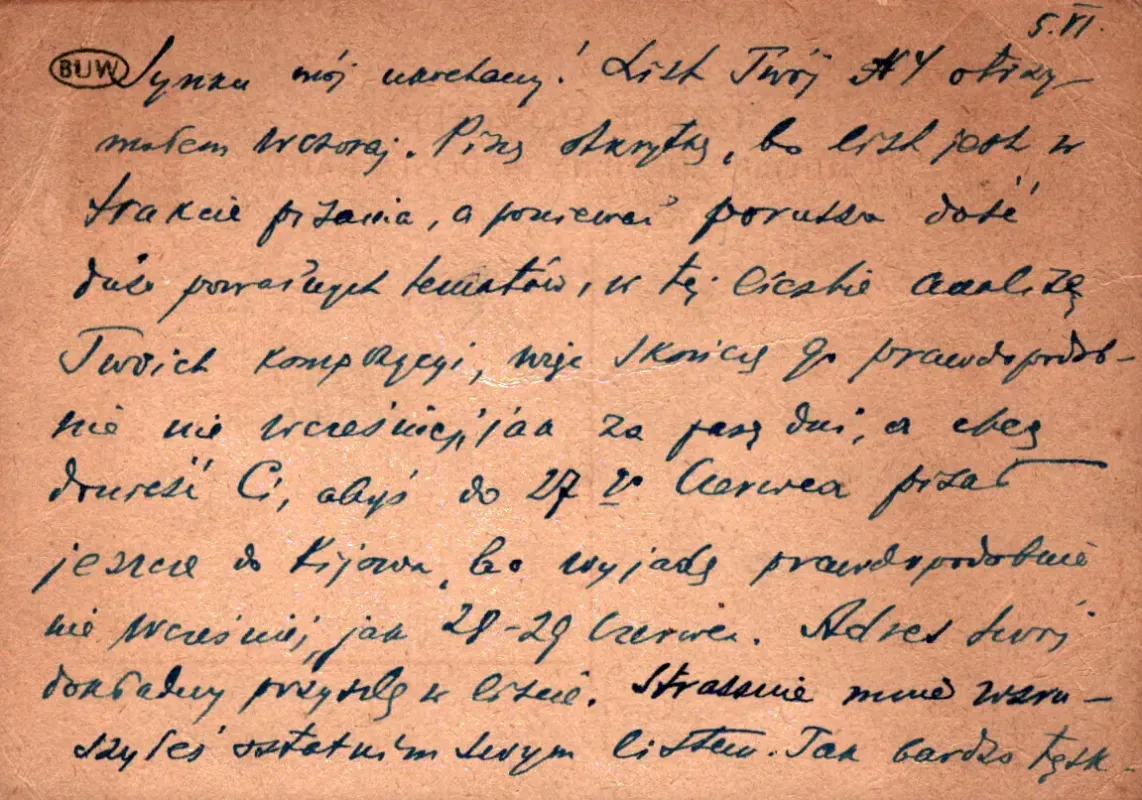 5.VI.
BUW
Synku mój ukochany! List Twój № 4 otrzy-
małem wczoraj. Piszę odkrytkę, bo list jest w
trakcie pisania, a ponieważ porusza dość
dużo poważnych tematów, w tej liczbie analizę
Twoich kompozycyi, więc skończę go prawdopodob-
nie nie wcześniej, jak za parę dni, a chcę
donieść Ci, abyś do 27 go Czerwca pisał
jeszcze do Kijowa, bo wyjadę prawdopodobnie
nie wcześniej, jak 28-29 Czerwca. Adres swój
dokładny przyszlę w liście. Strasznie mnie wzru-
szyłeś ostatnim swym listem. Tak bardzo tęsk-